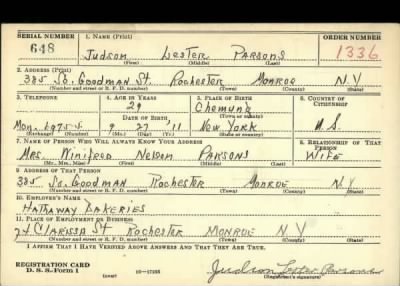 SERIAL NUMBER 1. NAME (Print) ORDER NUMBER
648 Judson Lester Parsons 1336
(First) (Middle) (Last)
2. ADDRESS (Print)
385 So. Goodman St. Rochester Monroe N.Y
(Number and street or R. F. D. number) (Town) (County) (State)
3. TELEPHONE 4. AGE IN YEARS 5. PLACE OF BIRTH 6. COUNTRY OF CITIZENSHIP
29 Chemung
DATE OF BIRTH (Town or county)
Mon. 6975-J 9 27 '11 New York U.S.
(Exchange) (Number) (Mo.) (Day) (Yr.) (State or country)
7. NAME OF PERSON WHO WILL ALWAYS KNOW YOUR ADDRESS 8. RELATIONSHIP OF THAT PERSON
Mrs. Winifred Nelson Parsons Wife
(Mr., Mrs., Miss) (First) (Middle) (Last)
9. ADDRESS OF THAT PERSON
385 So. Goodman Rochester Monroe N.Y
(Number and street or R. F. D. number) (Town) (County) (State)
10. EMPLOYER'S NAME
Hathaway Bakeries
11. PLACE OF EMPLOYMENT OR BUSINESS
Clarissa St Rochester Monroe N.Y
(Number and street or R. F. D. number) (Town) (County) (State)
I AFFIRM THAT I HAVE VERIFIED ABOVE ANSWERS AND THAT THEY ARE TRUE.
REGISTRATION CARD
D. S. S. Form 1 (over) 16—17105 Judson Lester Parsons
(Registrant's signature)